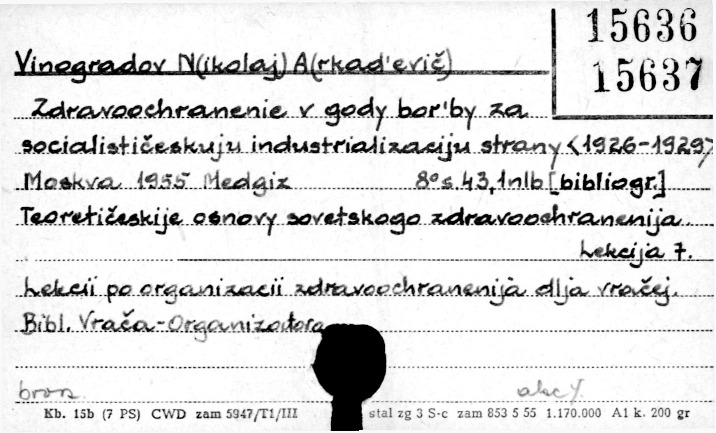 15636
15637
Vinogradov N(ikolaj) A(rkad'evič)
Zdravoochranenie v gody bor'by za
socialističeskuju industrializaciju strany <1926-1929>
Moskva 1955 Medgiz 8° s. 43, 1 nlb [bibliogr.]
Teoretičeskije osnovy sovetskogo zdravoochranenija.
Lekcija 7.
Lekcii po organizacii zdravoochranenija dlja vračej.
Bibl. Vrača-Organizatora
brosz.
Kb. 15b (7 PS) CWD zam 5947/T1/III stal zg 3 S-c zam 853 5 55 1.170.000 A1 k. 200 gr